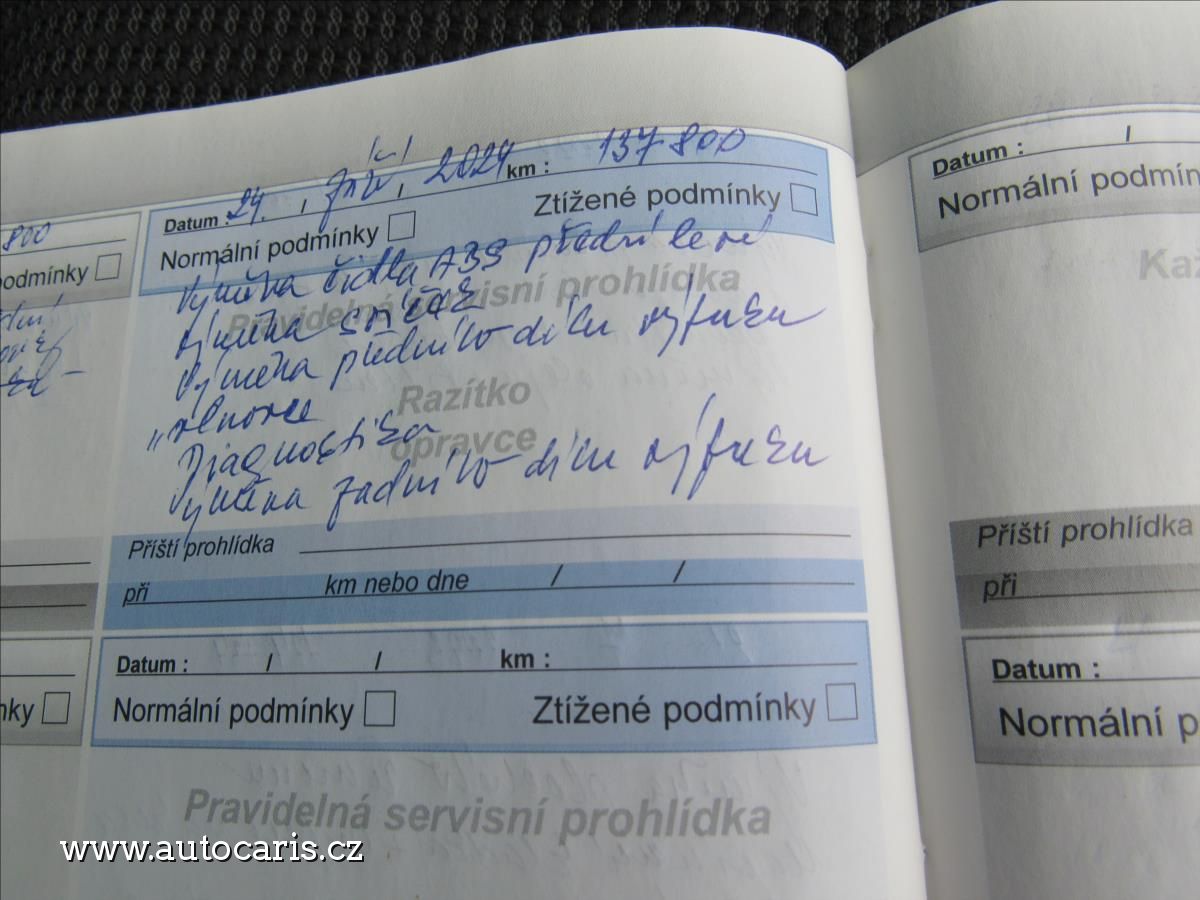 800
podmínky
Datum : 24. / Září / 2024 km : 137 800
Normální podmínky
Ztížené podmínky
Výměna čidla ABS přední levé
Pravidelná servisní prohlídka
výměna svíček
Výměna předního dílu výfuku
Razítko
opravce
„vlnovce
Diagnostika
výměna zadního dílu výfuku
Příští prohlídka
při km nebo dne / /
Datum : / / km :
Normální podmínky
Ztížené podmínky
Pravidelná servisní prohlídka
nky
Datum : /
Normální podmín
Ka
Příští prohlídka
při
Datum :
Normální p
www.autocaris.cz